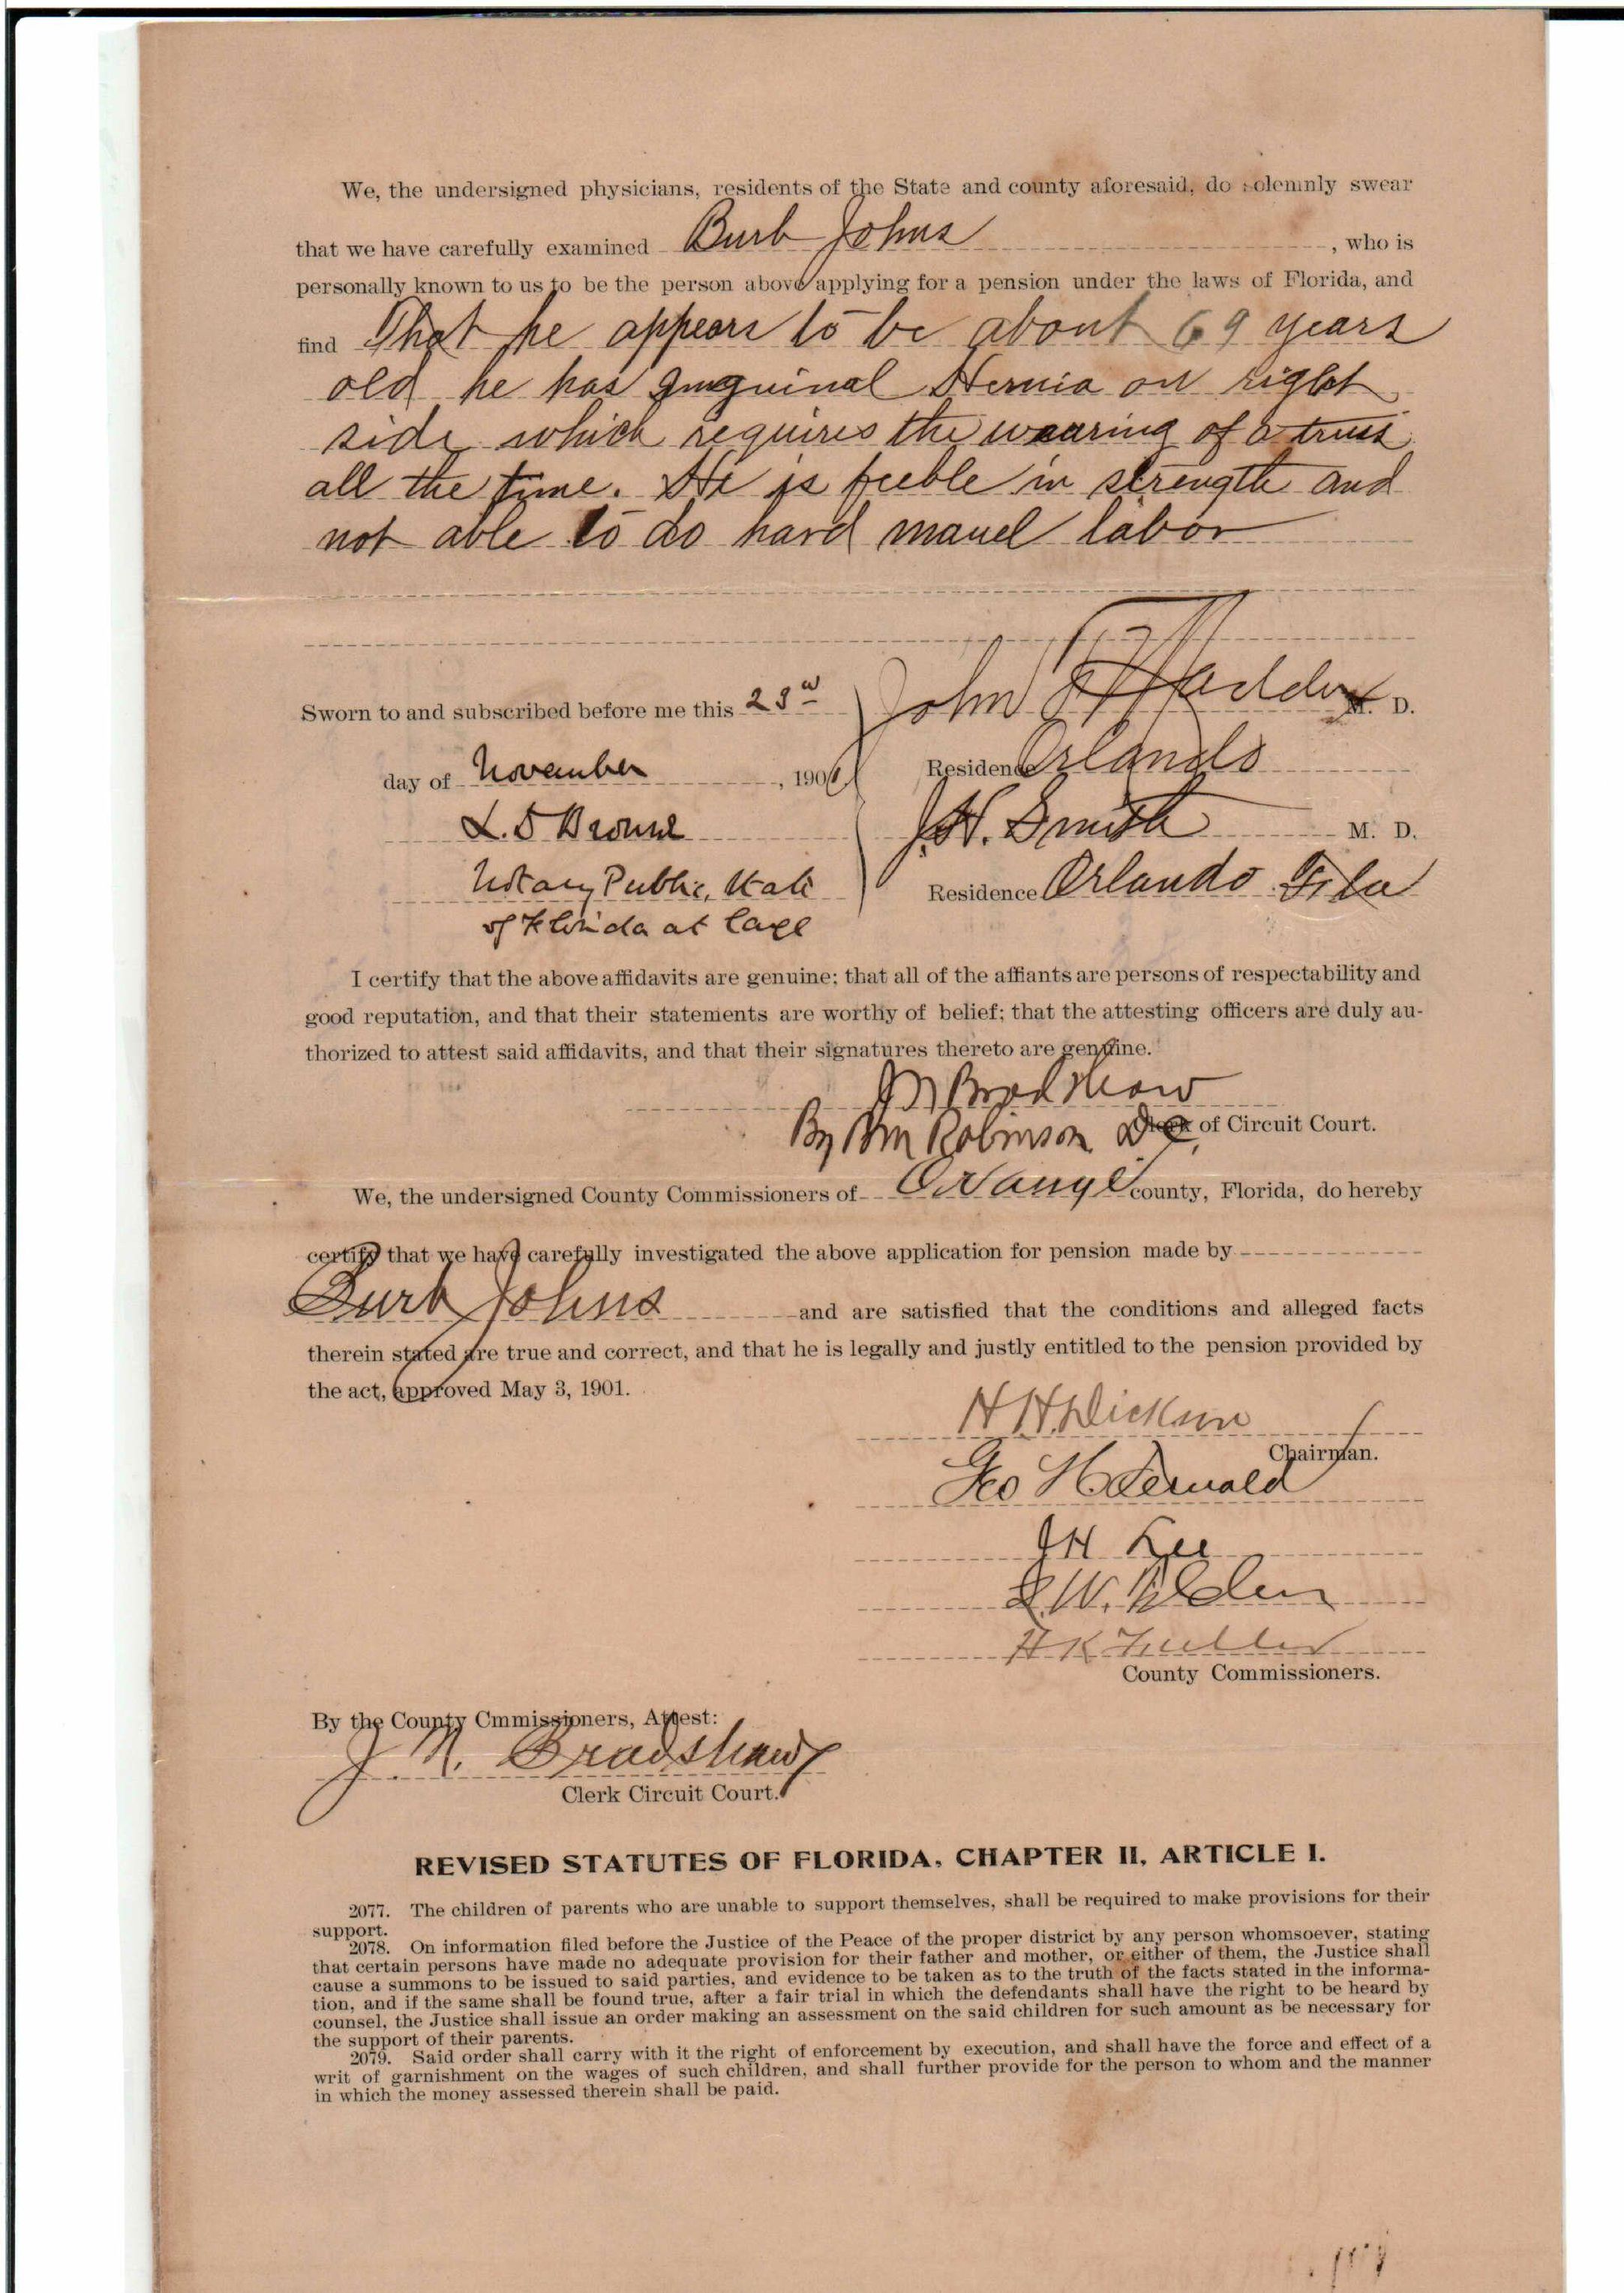 We, the undersigned physicians, residents of the State and county aforesaid, do solemnly swear
that we have carefully examined Burb Johns , who is
personally known to us to be the person above applying for a pension under the laws of Florida, and
find That he appears to be about 69 years
old he has Inguinal Hernia on right
side which requires the wearing of a truss
all the time. He is feeble in strength and
not able to do hard manel labor
Sworn to and subscribed before me this 23rd
John M. D.
day of November , 1901
Residence Orlando
L. D Browne
J. H. Smith M. D.
Notary Public, State
Residence Orlando Fla
of Florida at large
I certify that the above affidavits are genuine; that all of the affiants are persons of respectability and
good reputation, and that their statements are worthy of belief; that the attesting officers are duly au-
thorized to attest said affidavits, and that their signatures thereto are genuine.
J N Bradshaw
By BM Robinson DC
Clerk of Circuit Court.
We, the undersigned County Commissioners of Orange county, Florida, do hereby
certify that we have carefully investigated the above application for pension made by
Burb Johns and are satisfied that the conditions and alleged facts
therein stated are true and correct, and that he is legally and justly entitled to the pension provided by
the act, approved May 3, 1901.
H. H. Dickson
Chairman.
Geo H Fernald
J H Lee
W.
H K Fuller
County Commissioners.
By the County Cmmissioners, Attest:
J. N. Bradshaw
Clerk Circuit Court.
REVISED STATUTES OF FLORIDA, CHAPTER II, ARTICLE I.
2077. The children of parents who are unable to support themselves, shall be required to make provisions for their
support.
2078. On information filed before the Justice of the Peace of the proper district by any person whomsoever, stating
that certain persons have made no adequate provision for their father and mother, or either of them, the Justice shall
cause a summons to be issued to said parties, and evidence to be taken as to the truth of the facts stated in the informa-
tion, and if the same shall be found true, after a fair trial in which the defendants shall have the right to be heard by
counsel, the Justice shall issue an order making an assessment on the said children for such amount as be necessary for
the support of their parents.
2079. Said order shall carry with it the right of enforcement by execution, and shall have the force and effect of a
writ of garnishment on the wages of such children, and shall further provide for the person to whom and the manner
in which the money assessed therein shall be paid.